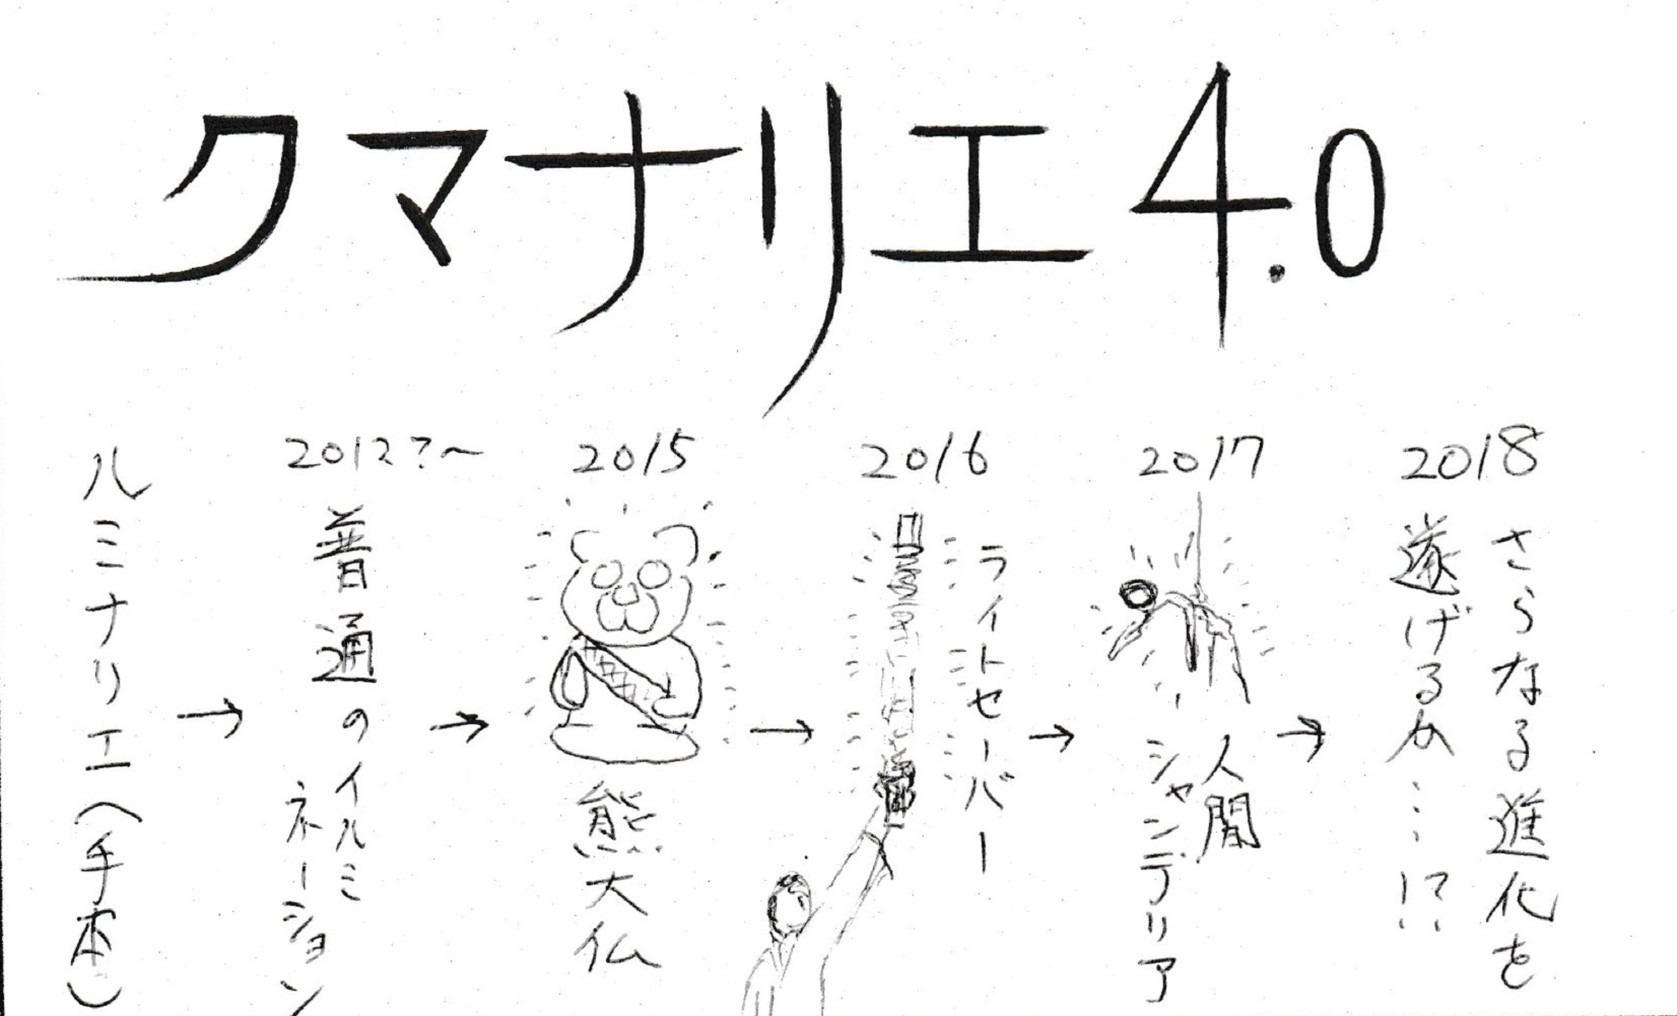 クマナリエ4.0
ルミナリエ(手本)
→
2012?～
普通のイルミ
ネーション
→
2015
熊大仏
→
2016
ライトセーバー
→
2017
人間
シャンデリア
→
2018
さらなる進化を
遂げるか…!?